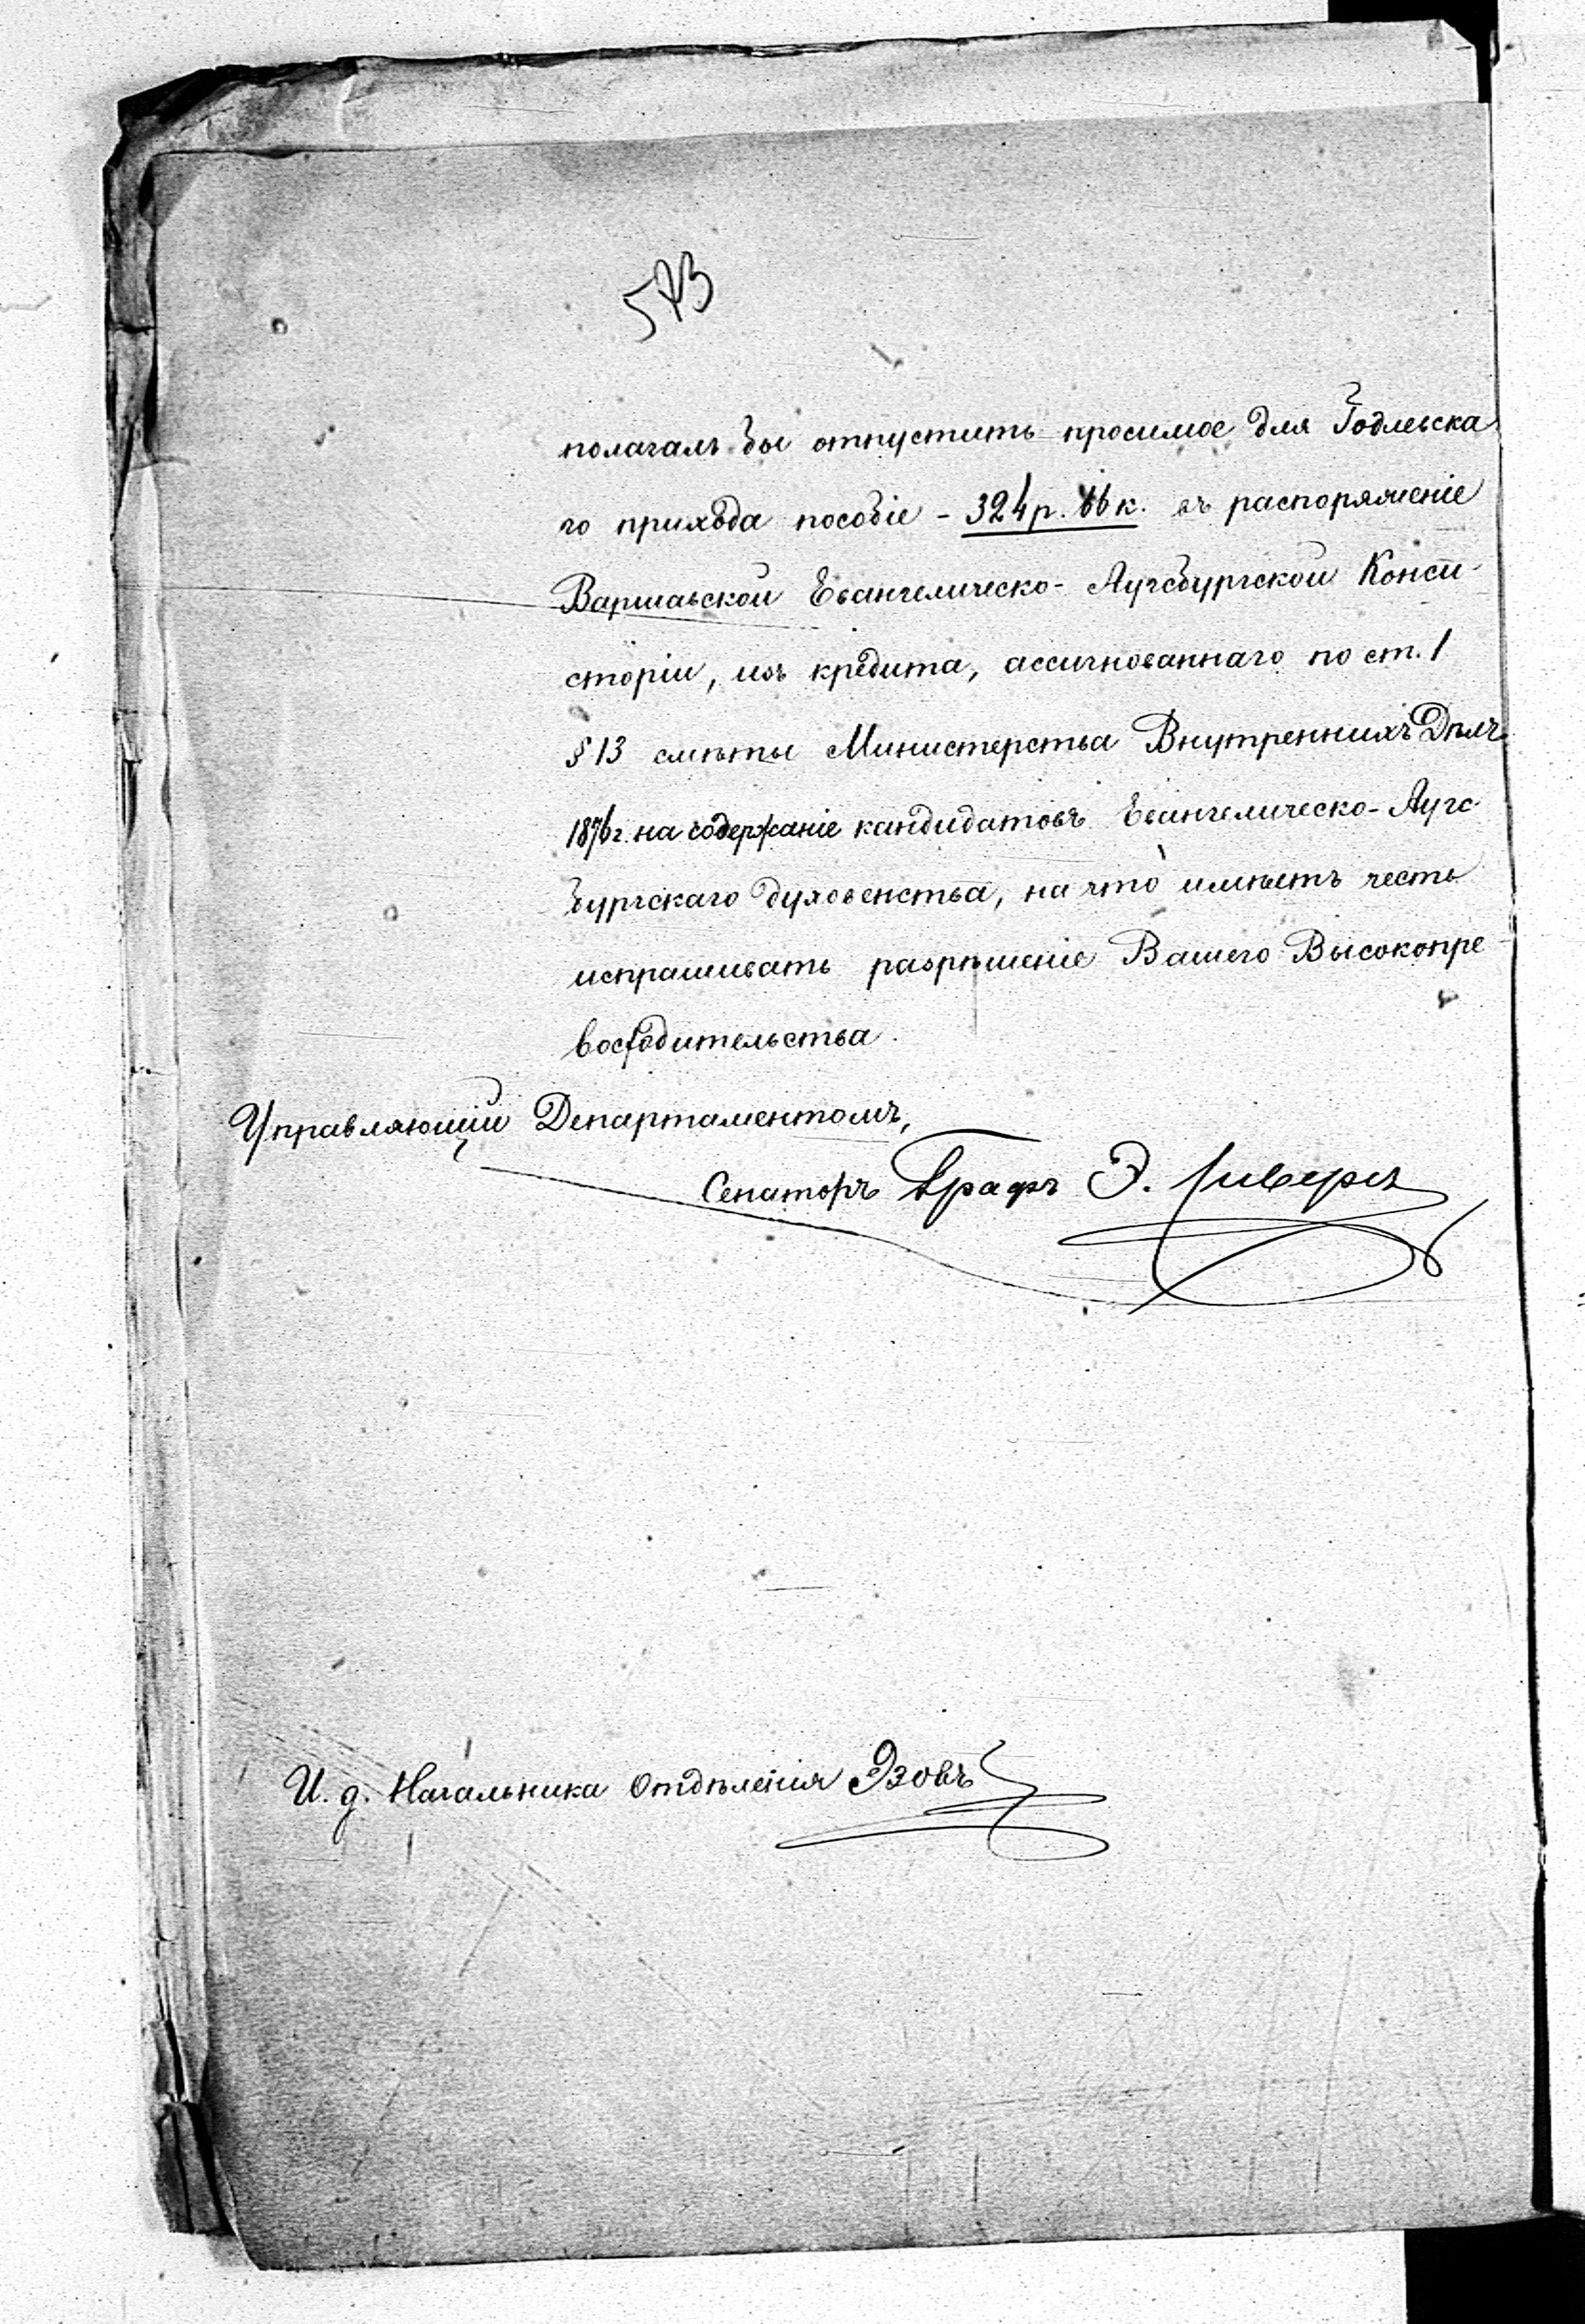 573
полагалъ бы отпустить просимое для Годлевска
го прихода пособіе - 324 р. 66 к. въ распоряженіе
Варшавской Евангелическо-Аугсбургской Конси-
сторіи, изъ кредита, ассигнованнаго по ст. 1
§ 13 смѣты Министерства Внутреннихъ Дѣлъ
1876 г. на содержаніе кандидатовъ Евангелическо-Аугс-
бургскаго духовенства, на что имѣетъ честь
испрашивать разрѣшеніе Вашего Высокопре-
восходительства.
Управляющій Департаментомъ,
Сенаторъ Графъ Э. Сиверсъ
И. д. Начальника Отдѣленія Эзовъ